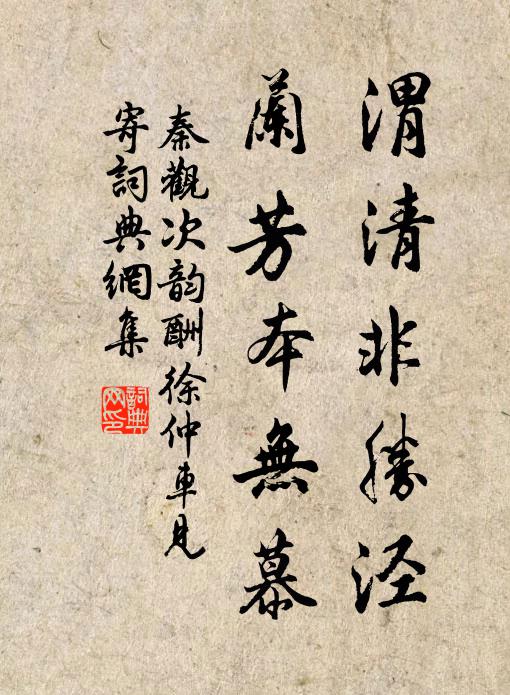 渭清非勝涇
蘭芳本無慕
秦觀次韵酬徐仲車見
寄詞典網集
詞典
网印